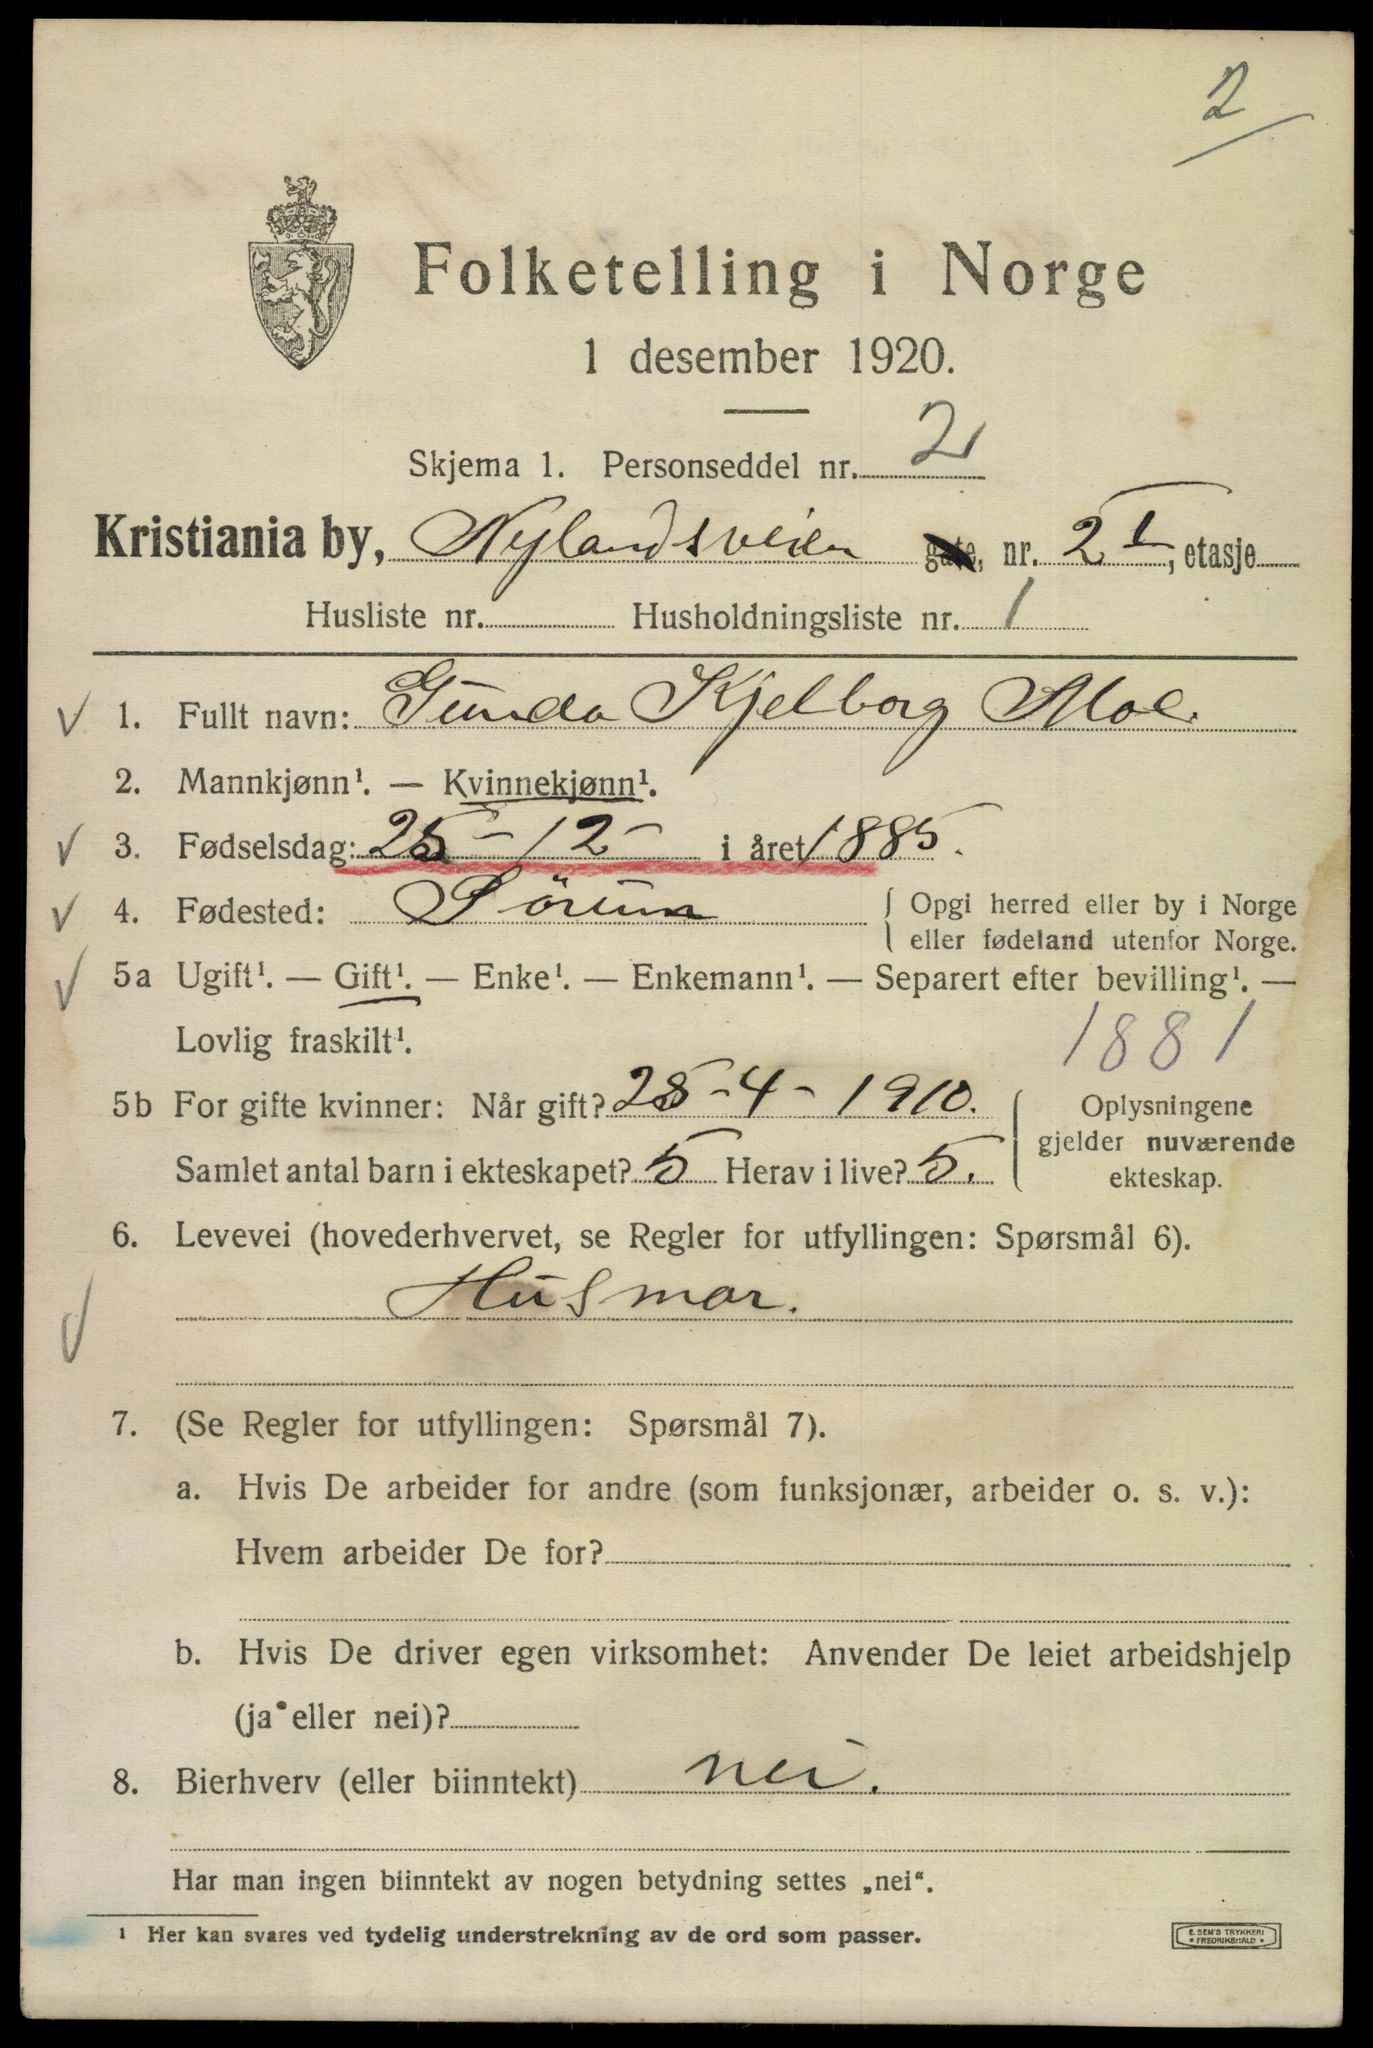 2
Folketelling i Norge
1 desember 1920.
Skjema 1. Personseddel nr. 2
Kristiania by, Nylandsveien gate, nr. 2 I, etasje
Husliste nr. Husholdningsliste nr. 1
1. Fullt navn: Gunda Kjelborg Moe.
2. Mannkjønn¹. — Kvinnekjønn¹.
3. Fødselsdag: 25-12- i året 1885.
4. Fødested: Sørum { Opgi herred eller by i Norge
eller fødeland utenfor Norge.
5a Ugift¹. — Gift¹. — Enke¹. — Enkemann¹. — Separert efter bevilling¹. —
Lovlig fraskilt¹. 1881
5b For gifte kvinner: Når gift? 25-4-1910. { Oplysningene
gjelder nuværende
Samlet antal barn i ekteskapet? 5 Herav i live? 5. ekteskap.
6. Levevei (hovederhvervet, se Regler for utfyllingen: Spørsmål 6).
Husmor.
7. (Se Regler for utfyllingen: Spørsmål 7).
a. Hvis De arbeider for andre (som funksjonær, arbeider o. s. v.):
Hvem arbeider De for?
b. Hvis De driver egen virksomhet: Anvender De leiet arbeidshjelp
(ja eller nei)?
8. Bierhverv (eller biinntekt) nei.
Har man ingen biinntekt av nogen betydning settes „nei“.
¹ Her kan svares ved tydelig understrekning av de ord som passer.
E. SEM'S TRYKKERI
FREDRIKSHALD